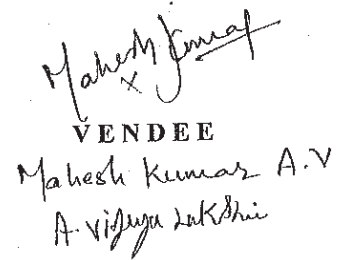 Mahesh Kumar
x
VENDEE
Mahesh Kumar A.V
A. Vijaya LakShmi